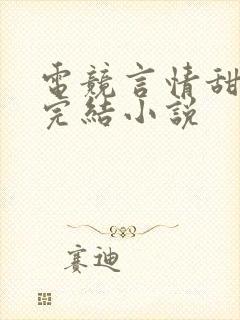 電競言情甜
完結小說
賽迪